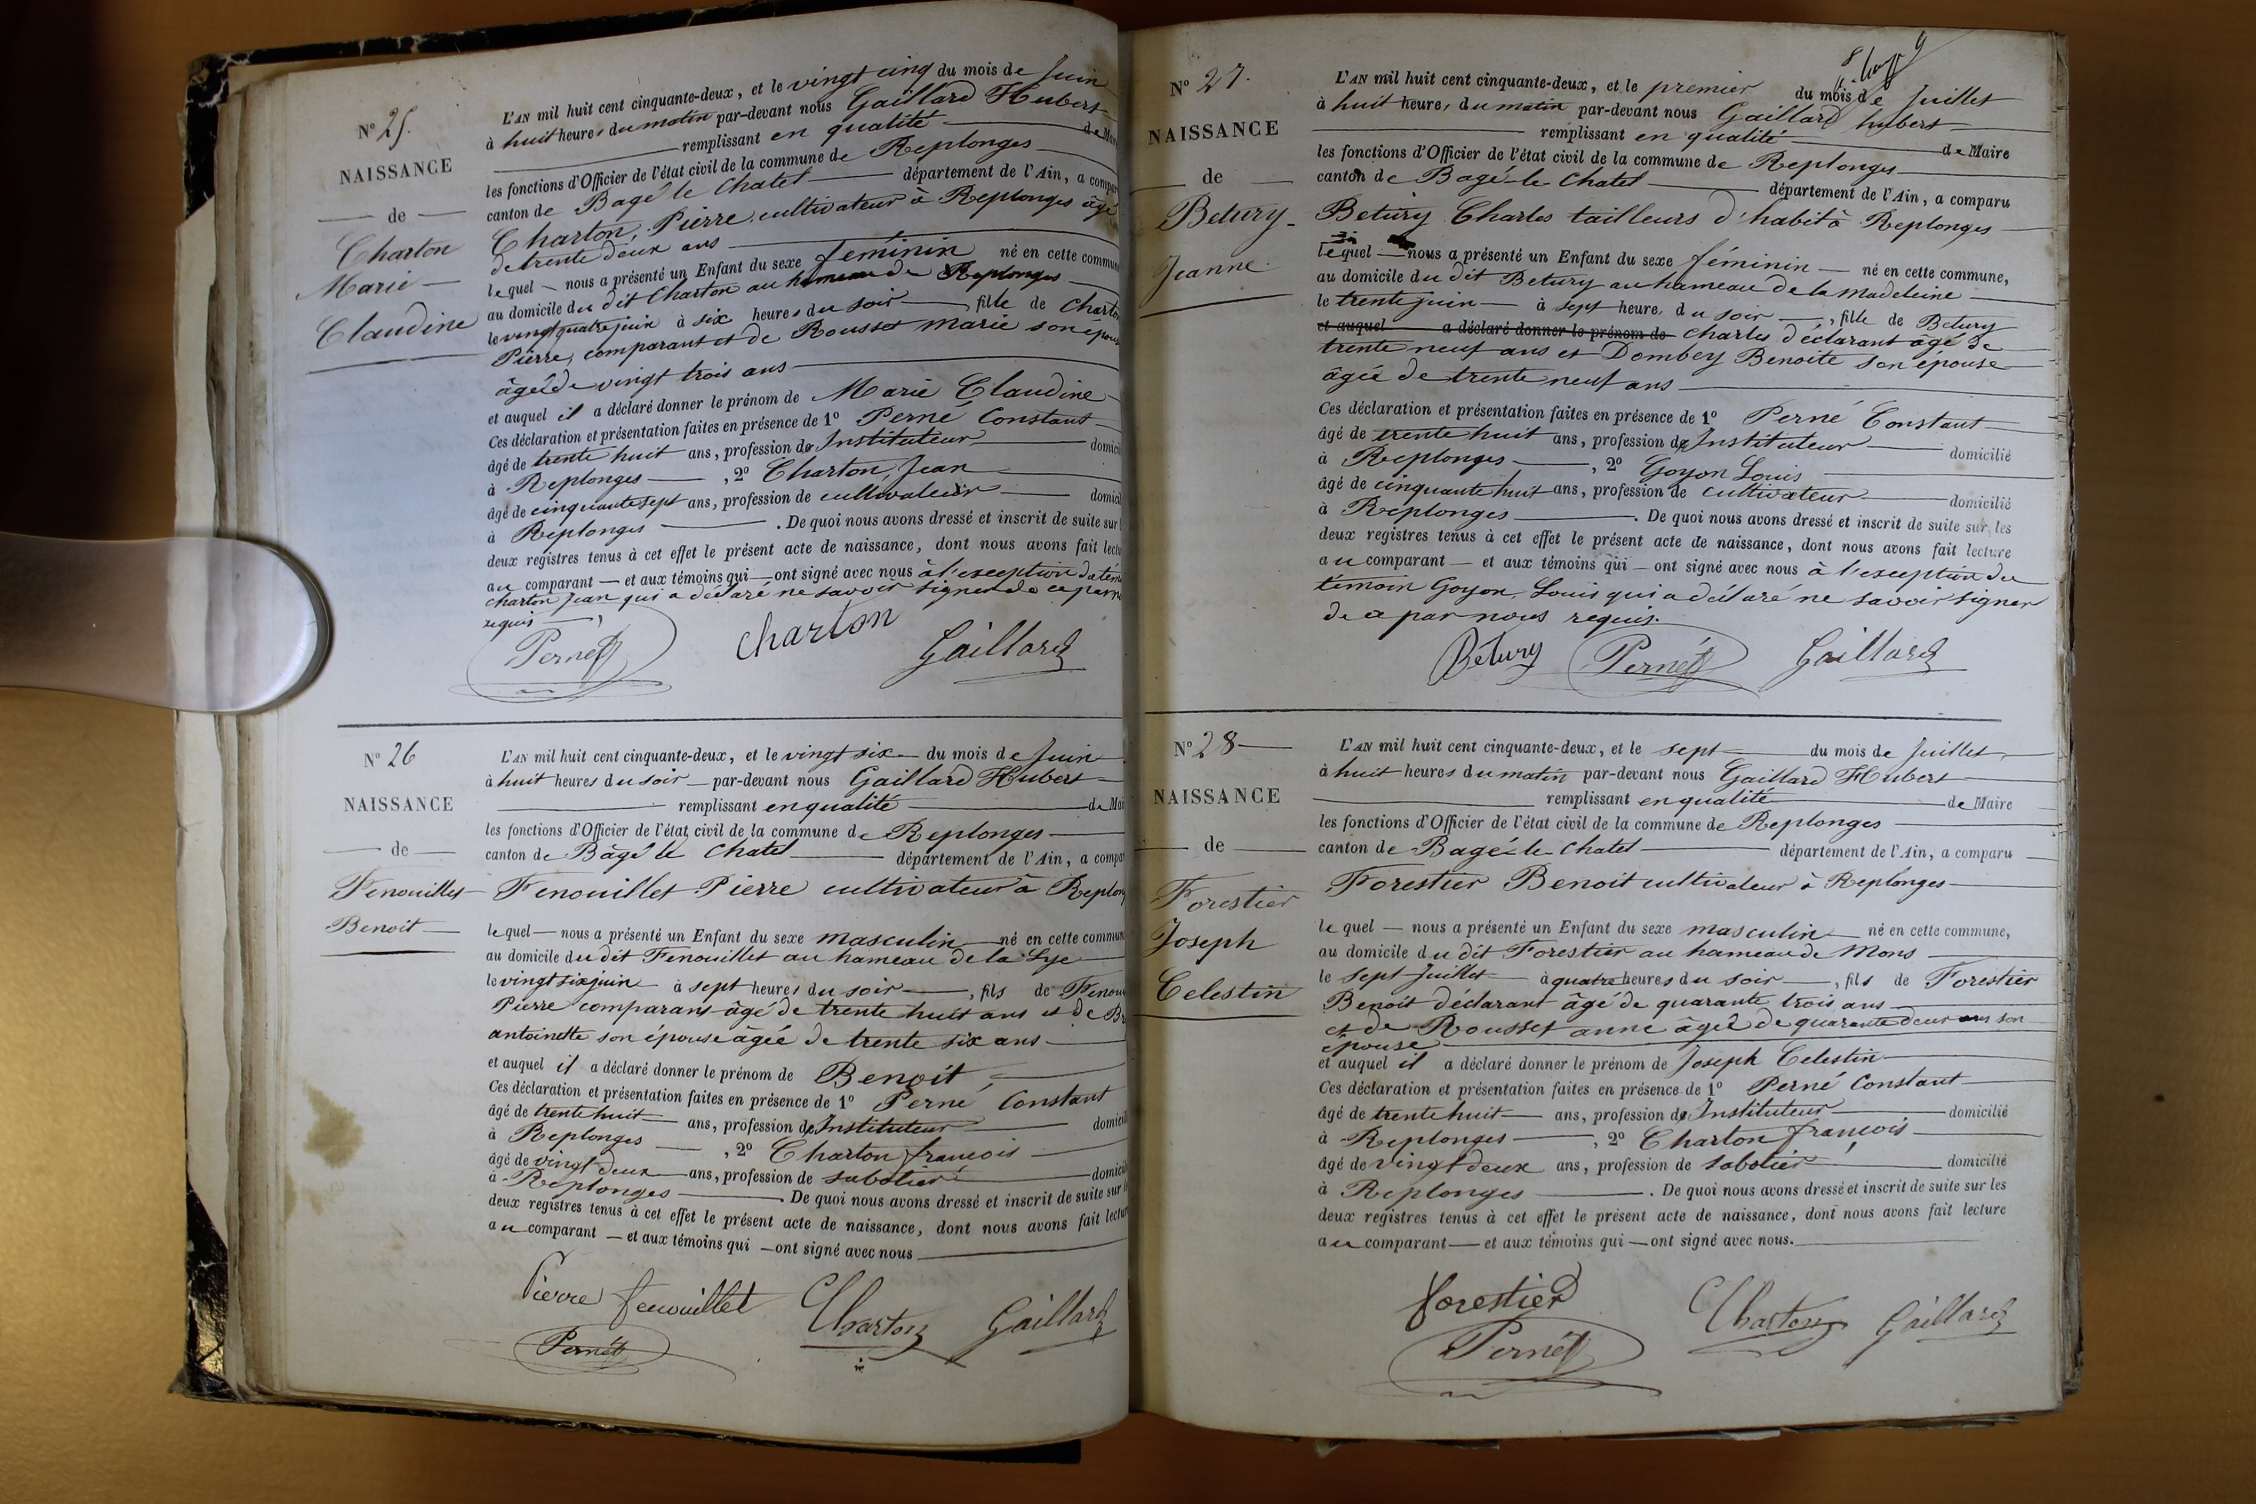 N° 25.
NAISSANCE
de
Charton
Marie
Claudine
L'AN mil huit cent cinquante-deux, et le vingt cinq du mois de Juin
à huit heures du matin par-devant nous Gaillard Hubert
remplissant en qualité de Mai
les fonctions d'Officier de l'état civil de la commune de Replonges
canton de Bagé le Chatel département de l'Ain, a compar
Charton, Pierre, cultivateur à Replonges âgé
de trente deux ans
lequel nous a présenté un Enfant du sexe féminin né en cette commune
au domicile du dit Charton au hameau de Replonges
le vingt quatre juin à six heures du soir, fille de Charton
Pierre, comparant et de Rousset Marie son épouse
âgée de vingt trois ans
et auquel il a déclaré donner le prénom de Marie Claudine
Ces déclaration et présentation faites en présence de 1° Perné Constant
âgé de trente huit ans, profession de Instituteur domici
à Replonges, 2° Charton, Jean
âgé de cinquante sept ans, profession de cultivateur domici
à Replonges. De quoi nous avons dressé et inscrit de suite sur
deux registres tenus à cet effet le présent acte de naissance, dont nous avons fait lectu
au comparant et aux témoins qui ont signé avec nous à l'exception du tém
Charton Jean qui a déclaré ne savoir signer de ce par n
requis
Perné Charton Gaillard
N° 26
NAISSANCE
de
Fenouillet
Benoit
L'AN mil huit cent cinquante-deux, et le vingt six du mois de Juin
à huit heures du soir par-devant nous Gaillard Hubert
remplissant en qualité de Mai
les fonctions d'Officier de l'état civil de la commune de Replonges
canton de Bâgé le Chatel département de l'Ain, a compar
Fenouillet Pierre cultivateur à Replong
lequel nous a présenté un Enfant du sexe masculin né en cette commun
au domicile du dit Fenouillet au hameau de la Lye
le vingt six juin à sept heures du soir, fils de Fenou
Pierre comparant âgé de trente huit ans et de Br
antoinette son épouse âgée de trente six ans
et auquel il a déclaré donner le prénom de Benoit
Ces déclaration et présentation faites en présence de 1° Perné Constant
âgé de trente huit ans, profession de Instituteur domicili
à Replonges, 2° Charton françois
âgé de vingt deux ans, profession de sabotier domicil
à Replonges. De quoi nous avons dressé et inscrit de suite sur
deux registres tenus à cet effet le présent acte de naissance, dont nous avons fait lectur
au comparant et aux témoins qui ont signé avec nous
Pierre fenouillet Charton Gaillard
Perné
N° 27.
NAISSANCE
de
Betury
Jeanne
L'AN mil huit cent cinquante-deux, et le premier du mois de Juillet
à huit heures du matin par-devant nous Gaillard hubert
remplissant en qualité de Maire
les fonctions d'Officier de l'état civil de la commune de Replonges
canton de Bagé-le Chatel département de l'Ain, a comparu
Betury Charles tailleurs d'habit à Replonges
lequel nous a présenté un Enfant du sexe féminin né en cette commune,
au domicile du dit Betury au hameau de la Madeleine
le trente juin à sept heure, du soir, fille de Betury
et auquel a déclaré donner le prénom de Charles déclarant âgé de
trente neuf ans et Dombey Benoite son épouse
âgée de trente neuf ans
Ces déclaration et présentation faites en présence de 1° Perné Constant
âgé de trente huit ans, profession de Instituteur domicilié
à Replonges, 2° Goyon Louis
âgé de cinquante huit ans, profession de cultivateur domicilié
à Replonges. De quoi nous avons dressé et inscrit de suite sur les
deux registres tenus à cet effet le présent acte de naissance, dont nous avons fait lecture
au comparant et aux témoins qui ont signé avec nous à l'exception du
témoin Goyon, Louis qui a déclaré ne savoir signer
de ce par nous requis.
Betury Perné Gaillard
N° 28
NAISSANCE
de
Forestier
Joseph
Celestin
L'AN mil huit cent cinquante-deux, et le sept du mois de Juillet
à huit heures du matin par-devant nous Gaillard Hubert
remplissant en qualité de Maire
les fonctions d'Officier de l'état civil de la commune de Replonges
canton de Bagé-le Chatel département de l'Ain, a comparu
Forestier Benoit cultivateur à Replonges
le quel nous a présenté un Enfant du sexe masculin né en cette commune,
au domicile du dit Forestier au hameau de Mons
le sept Juillet à quatre heures du soir, fils de Forestier
Benoit déclarant âgé de quarante trois ans
et de Rousset anne âgée de quarante deux ans son
épouse
et auquel il a déclaré donner le prénom de Joseph Celestin
Ces déclaration et présentation faites en présence de 1° Perné Constant
âgé de trente huit ans, profession de Instituteur domicilié
à Replonges, 2° Charton françois
âgé de vingt deux ans, profession de sabotier domicilié
à Replonges. De quoi nous avons dressé et inscrit de suite sur les
deux registres tenus à cet effet le présent acte de naissance, dont nous avons fait lecture
au comparant et aux témoins qui ont signé avec nous.
forestier Charton Gaillard
Perné